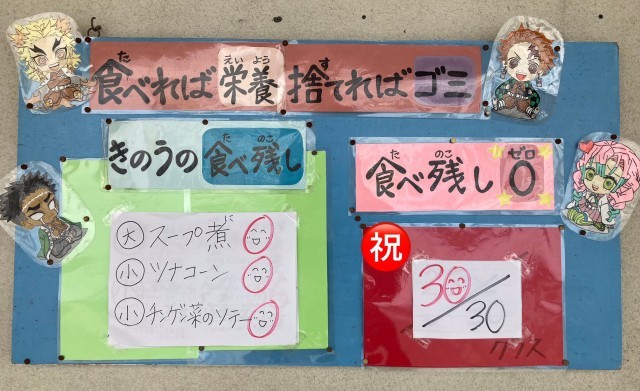 食べれば栄養 捨てればゴミ
きのうの食べ残し
大 スープ煮
小 ツナコーン
小 チンゲン菜のソテー
食べ残し 0
祝
30/30
クラス